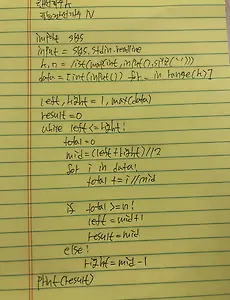 import sys
input = sys.stdin.readline
k, n = list(map(int, input().split(' ')))
data = [int(input()) for _ in range(k)]
left, right = 1, max(data)
result = 0
while left <= right:
total = 0
mid = (left + right) // 2
for i in data:
total += i // mid
if total >= n:
left = mid + 1
result = mid
else:
right = mid - 1
print(result)